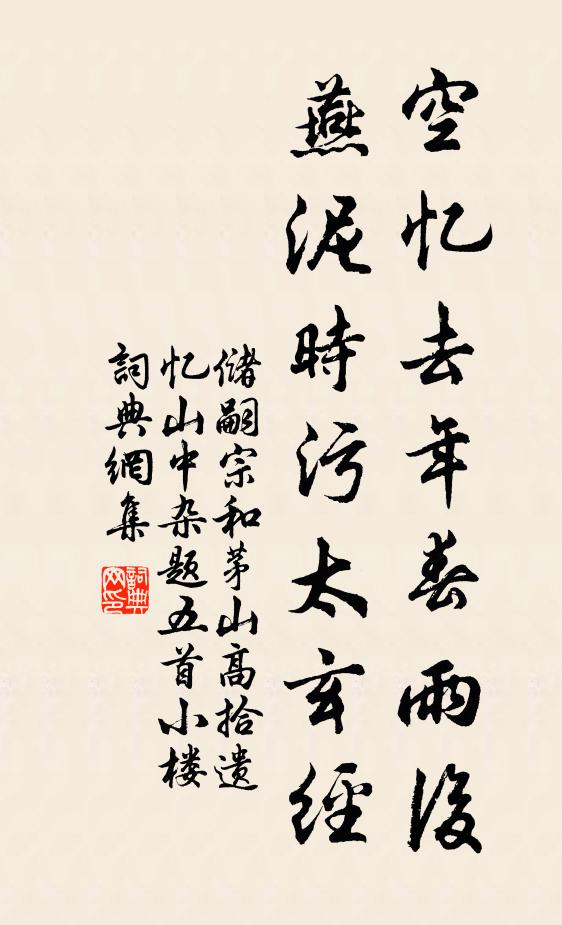 空忆去年春雨後
燕泥時污太玄經
储嗣宗和茅山高拾遗
忆山中杂题五首小楼
詞典網集
詞典网印